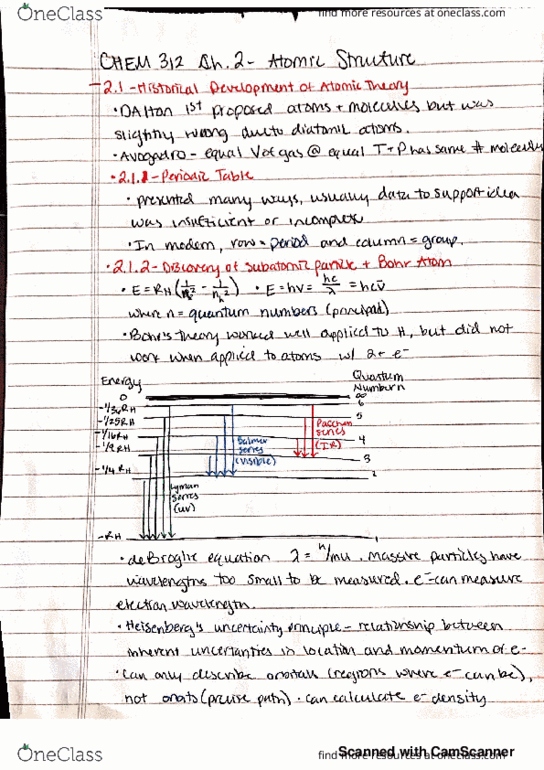 OneClass
find more resources at oneclass.com
CHEM 312 Ch. 2 - Atomic Structure
- 2.1 - Historical Development of Atomic Theory
• Dalton 1st proposed atoms + molecules but was
slightly wrong due to diatomic atoms.
• Avogadro - equal Vol gas @ equal T + P has same # molecules
• 2.1.1 - Periodic Table
• presented many ways, usually data to support idea
was insufficient or incomplete
• In modern, row = period and column = group.
• 2.1.2 - Discovery of subatomic particle + Bohr Atom
• E = RH (1/nl² - 1/nh²) • E = hv = hc/λ = hcv̄
where n = quantum numbers (principal)
• Bohr's theory worked well applied to H, but did not
work when applied to atoms w/ 2+ e-
Energy
Quantum
Number n
0
∞
-1/36 RH
6
-1/25 RH
5
-1/16 RH
4
-1/9 RH
3
-1/4 RH
2
-RH
1
Lyman
series
(UV)
Balmer
series
(visible)
Paschen
series
(IR)
• deBroglie equation λ = h/mu. massive particles have
wavelengths too small to be measured. e- can measure
electron wavelength.
• Heisenberg's uncertainty principle - relationship between
inherent uncertainties in location and momentum of e-
• can only describe orbitals (regions where e- can be),
not orbits (precise path) • can calculate e- density
OneClass
find more resources at oneclass.com
Scanned with CamScanner